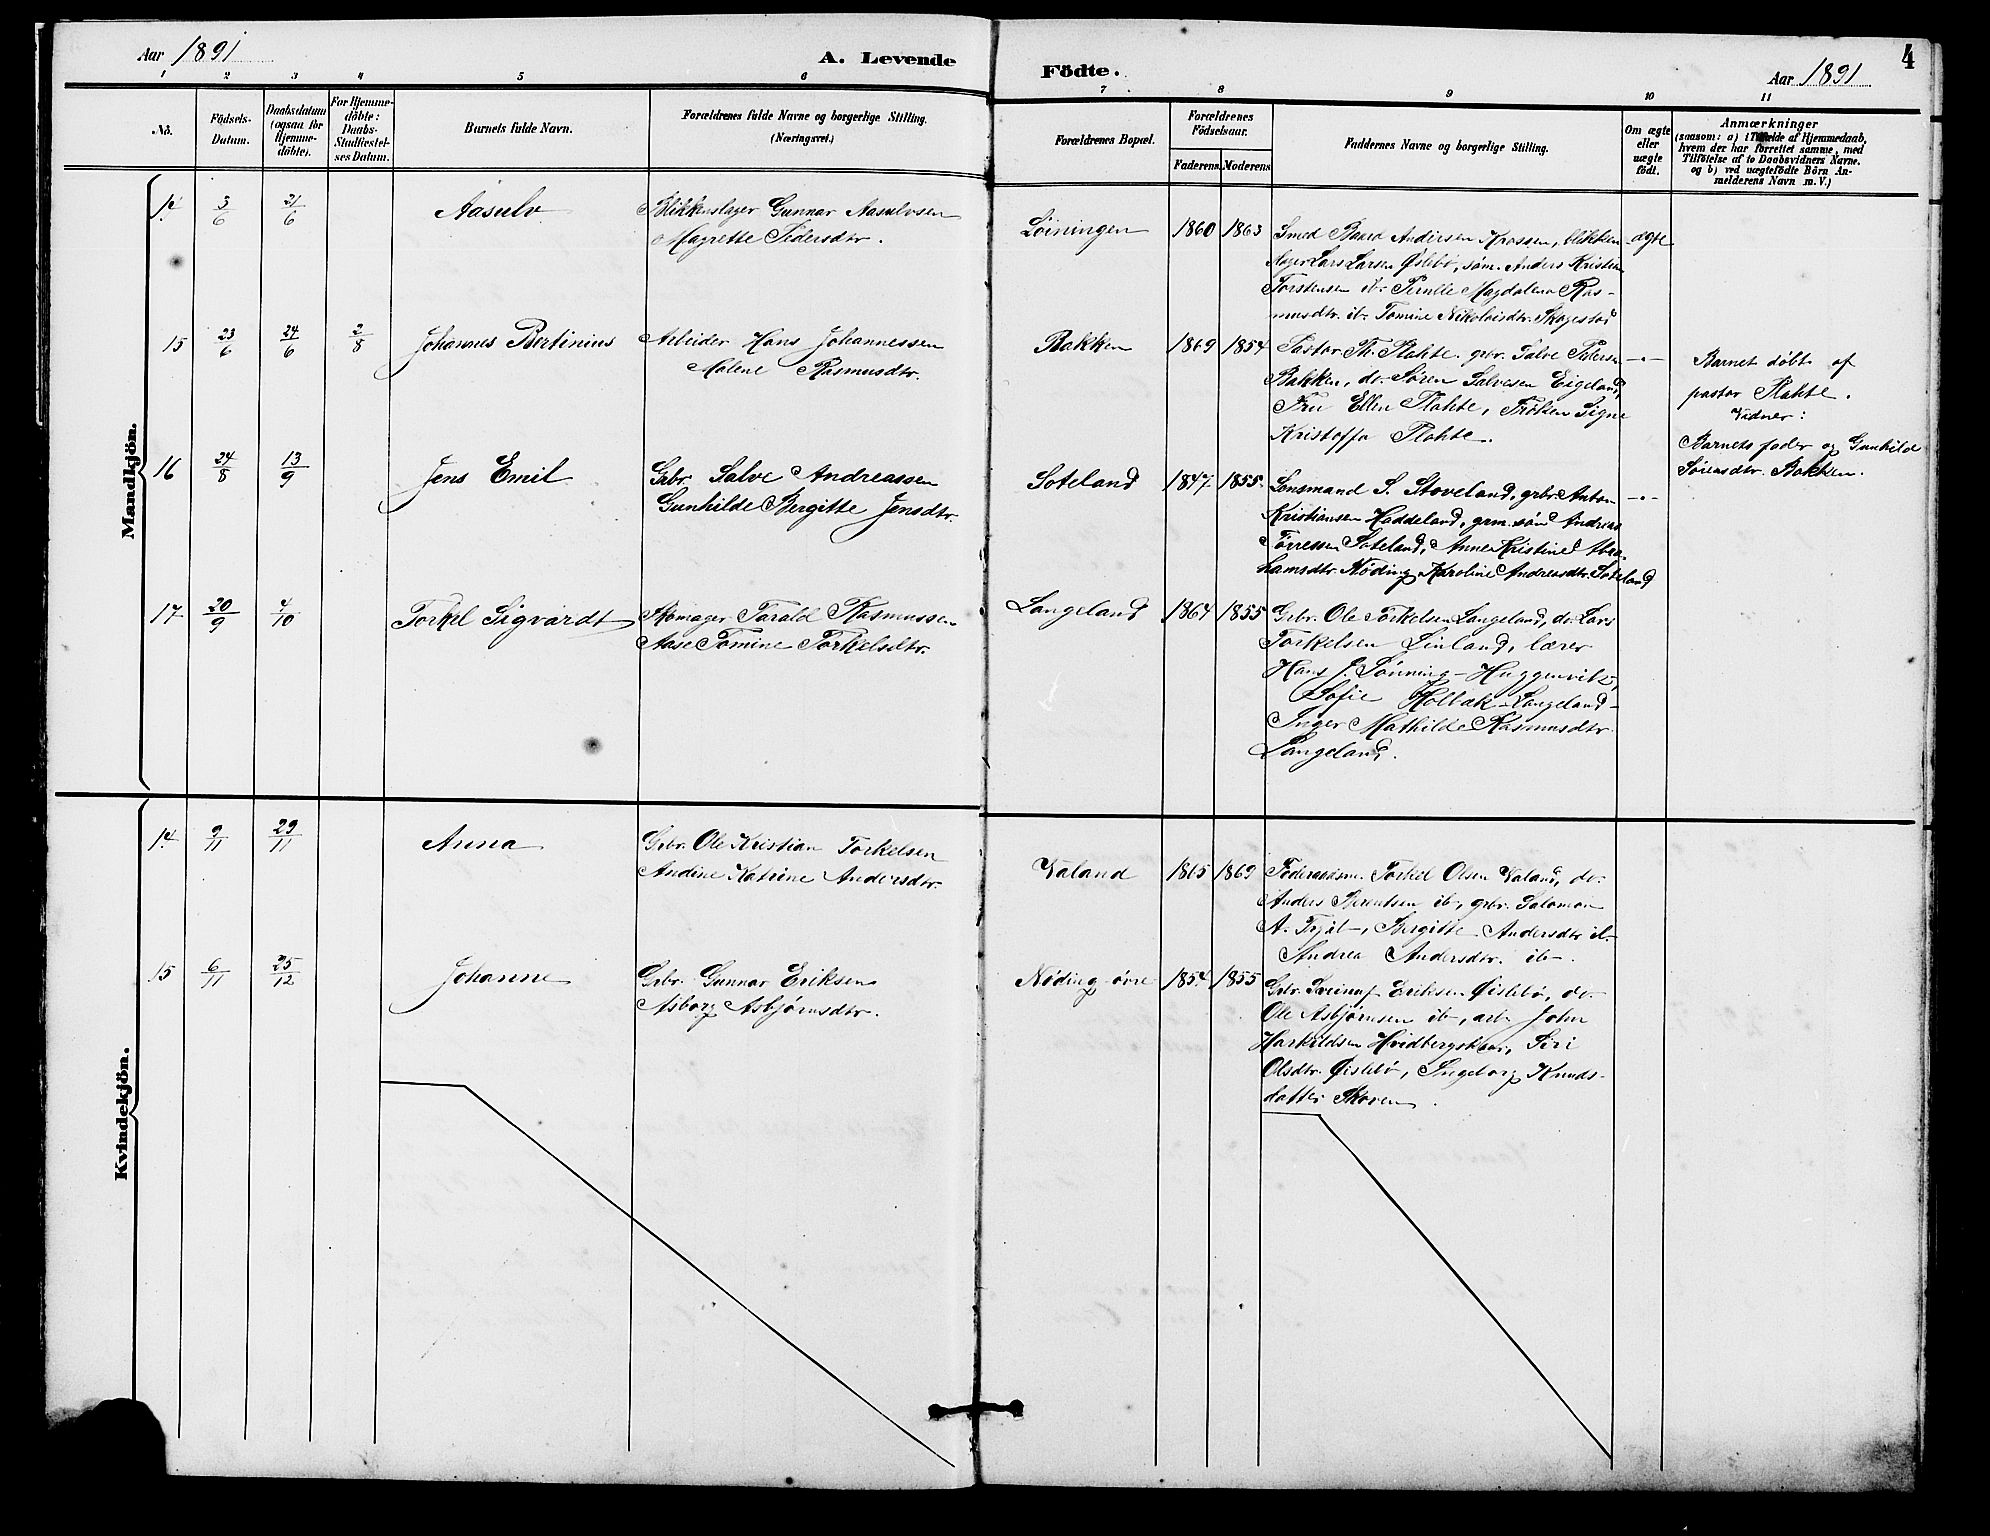 Aar 1891
A. Levende
Födte.
Aar 1891
4
1 2 3 4 5 6 7 8 9 10 11
No.
Födsels-
Datum.
Daabsdatum
(ogsaa for
Hjemme-
döbte).
For Hjemme-
döbte:
Daabs-
Stadfæstel-
ses Datum.
Barnets fulde Navn.
Forældrenes fulde Navne og borgerlige Stilling.
(Næringsvei.)
Forældrenes Bopæl.
Forældrenes
Födselsaar.
Faderens. Moderens.
Faddernes Navne og borgerlige Stilling.
Om ægte
eller
uægte
födt.
Anmærkninger
(saasom: a) i Tilfælde af Hjemmedaab,
hvem der har forrettet samme, med
Tilföielse af to Daabsvidners Navne.
og b) ved uægtefödte Börn An-
melderens Navn m. V.)
Mandkjön.
14 3/6 21/6 Aasulv
Blikkenslager Gunnar Aasulvsen
Magrette Pedersdtr.
Løiningen 1860 1863
Smed Baard Andersen Krossen, blikken-
slager Lars Larsen Øslebø, søm. Anders Kristian
Torstensen ib. Pernille Magdalena Ras-
musdtr. ib. Tomine Nikolaisdtr. Skogestad
ægte
15 23/6 24/6 2/8 Johannes Bertinius
Arbeider Hans Johannessen
Malene Rasmusdtr.
Bakken 1869 1854
Pastor Th. Flahte. grbr. Salve Pedersen
Bakken, do. Søren Salvesen Eigeland,
Fru Ellen Flahte, Frøken Signe
Kristoffa Flahte.
-"-
Barnet døbt af
pastor Flahte.
Vidner:
Barnets fader og Gunhilde
Sørensdtr. Bakken.
16 24/8 13/9 Jens Emil
Grbr. Salve Andreassen
Gunhilde Bergitte Jensdtr.
Soteland 1847 1855
Lensmand S. Stoveland, grbr. Anton
Kristiansen Haddeland, grm. søn Andreas
Tørressen Soteland, Anne Kristine Abra-
hamsdtr. Nøding, Karoline Andreasdtr. Soteland
-"-
17 20/9 4/10 Torkel Sigvardt
Skomager Tarald Rasmussen
Aase Tomine Torkelsdtr.
Langeland 1864 1855
Grbr. Ole Torkelsen Langeland, do. Lars
Torkelsen Linland, lærer
Hans J. Lønning - Huggenvik,
Sofie Hollak - Langeland -
Inger Mathilde Rasmusdtr.
Langeland.
Kvindekjön.
14 9/11 29/11 Anna
Grbr. Ole Kristian Torkelsen
Andine Katrine Andersdtr.
Valand 1865 1869
Føderaadsm. Torkel Olsen Valand, do.
Anders Berentsen ib, grbr. Salomon
A. -, Bergitte Andersdtr. ib
Andrea Andersdtr. ib.
15 6/11 25/12 Johanne
Grbr. Gunnar Eriksen
Asborg Asbjørnsdtr.
Nøding øvre 1854 1855
Grbr. Sveinung Eriksen Øislebø, do.
Ole Asbjørnsen ib, arb. John
Harkildsen Hvidbergskar, Siri
Olsdtr. Øislebø, Ingeborg Knuds-
datter Skoven.